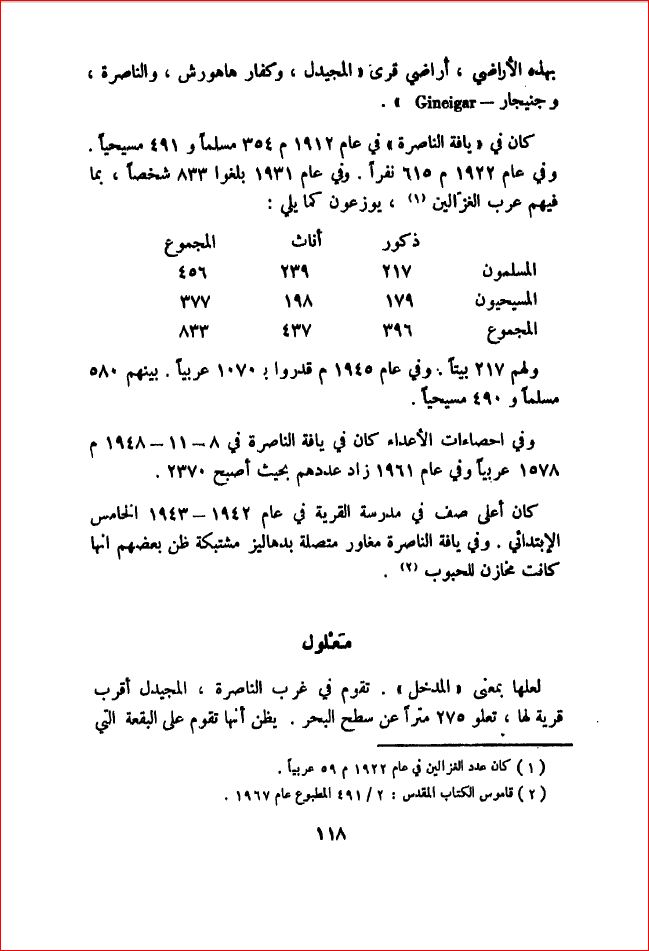 بهذه الأراضي ، أراضي قرى « المجيدل ، وكفار هاهورش ، والناصرة ،
وجنيجار – Gineigar » .
كان في « يافة الناصرة » في عام ١٩١٢ م ٣٥٤ مسلماً و ٤٩١ مسيحياً .
وفي عام ١٩٢٢ م ٦١٥ نفراً . وفي عام ١٩٣١ بلغوا ٨٣٣ شخصاً ، بما
فيهم عرب الغزّالين (١) ، يوزعون كما يلي :
ذكور أناث المجموع
المسلمون ٢١٧ ٢٣٩ ٤٥٦
المسيحيون ١٧٩ ١٩٨ ٣٧٧
المجموع ٣٩٦ ٤٣٧ ٨٣٣
ولهم ٢١٧ بيتاً . وفي عام ١٩٤٥ م قدروا بـ ١٠٧٠ عربياً . بينهم ٥٨٠
مسلماً و ٤٩٠ مسيحياً .
وفي احصاءات الأعداء كان في يافة الناصرة في ٨ – ١١ – ١٩٤٨ م
١٥٧٨ عربياً وفي عام ١٩٦١ زاد عددهم بحيث أصبح ٢٣٧٠ .
كان أعلى صف في مدرسة القرية في عام ١٩٤٢ – ١٩٤٣ الخامس
الإبتدائي . وفي يافة الناصرة مغاور متصلة بدهاليز مشتبكة ظن بعضهم انها
كانت مخازن للحبوب (٢) .
مَعْلول
لعلها بمعنى « المدخل » . تقوم في غرب الناصرة ، المجيدل أقرب
قرية لها ، تعلو ٢٧٥ متراً عن سطح البحر . يظن أنها تقوم على البقعة التي
( ١ ) كان عدد الغزالين في عام ١٩٢٢ م ٥٩ عربياً .
( ٢ ) قاموس الكتاب المقدس : ٢ / ٤٩١ المطبوع عام ١٩٦٧ .
١١٨